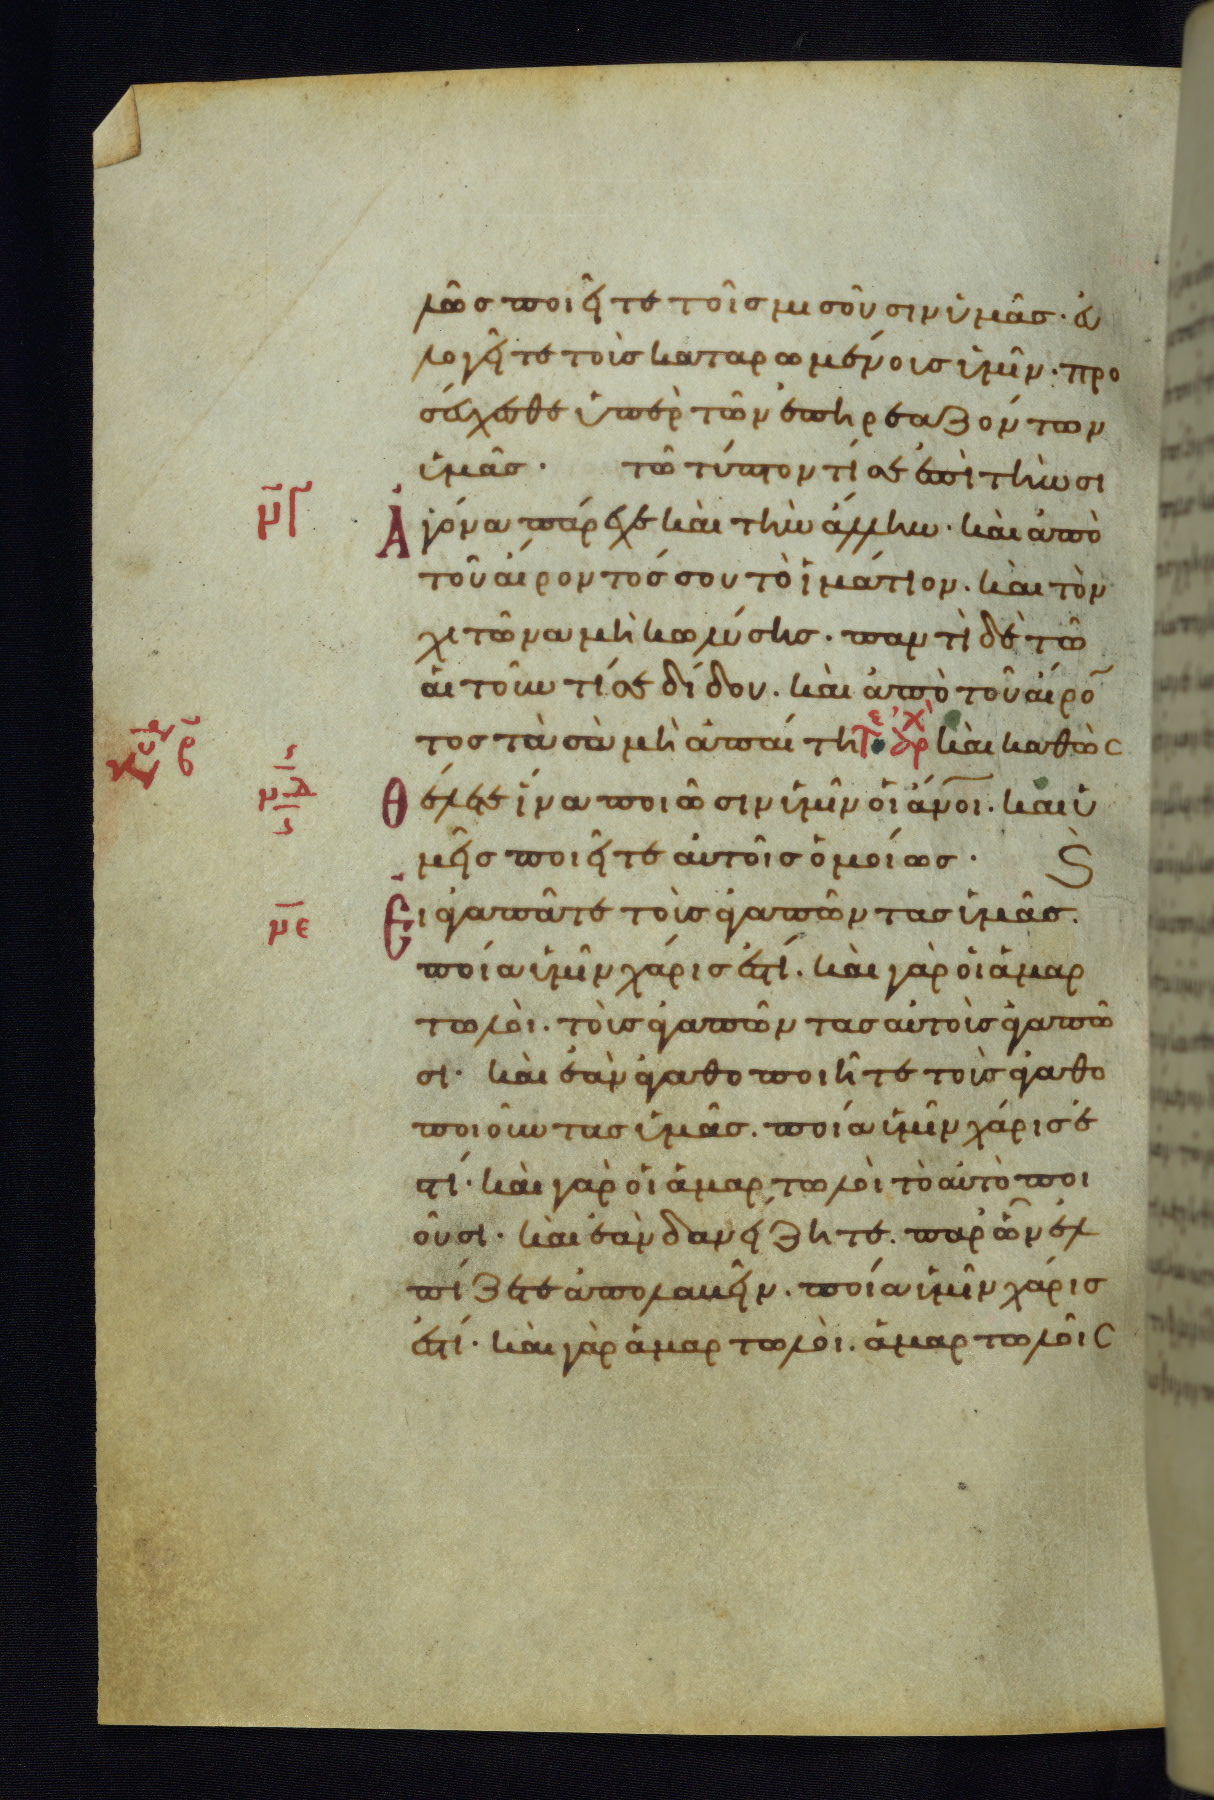 λῶσ ποιεῖτε τοῖσ μισοῦσιν ὑμᾶσ· εὐ
λογεῖτε τοῖσ καταρωμένοισ ὑμῖν· προ
σεύχεσθε ὑπὲρ τῶν ἐπηρεαζόντων
ὑμᾶσ· τῶ τύπτοντί σε ἐπὶ τὴν σι
μγ
Ἀγόνα πάρεχε καὶ τὴν ἄλλην· καὶ ἀπὸ
τοῦ αἴροντόσ σου τὸ ἱμάτιον. καὶ τὸν
χιτῶνα μὴ κωλύσησ· παντὶ δὲ τῶ
αἰτοῦντί σε δίδου. καὶ ἀπὸ τοῦ αἴρο̅
τοσ τὰ σὰ μὴ ἀπαίτει καὶ καθὼσ
μδ
Θέλετε ἵνα ποιῶσιν ὑμῖν οἱ ἄν̅οι. καὶ ὑ
μεῖσ ποιεῖτε αὐτοῖσ ὁμοίωσ·
με
Εἰ ἀγαπᾶτε τοὺσ ἀγαπῶντασ ὑμᾶσ.
ποία ὑμῖν χάρισ ἐστί. καὶ γὰρ οἱ ἁμαρ
τωλοὶ. τοὺσ ἀγαπῶντασ αὐτοὺσ ἀγαπῶ
σι· καὶ ἐὰν ἀγαθοποιῆτε τοὺσ ἀγαθο
ποιοῦντασ ὑμᾶσ. ποία ὑμῖν χάρισ ἐ
στί· καὶ γὰρ οἱ ἁμαρτωλοὶ τὸ αὐτὸ ποι
οῦσι· καὶ ἐὰν δανείζητε. παρ ὧν ἐλ
πίζετε ἀπολαβεῖν. ποία ὑμῖν χάρισ
ἐστί· καὶ γὰρ ἁμαρτωλοὶ. ἁμαρτωλοῖσ